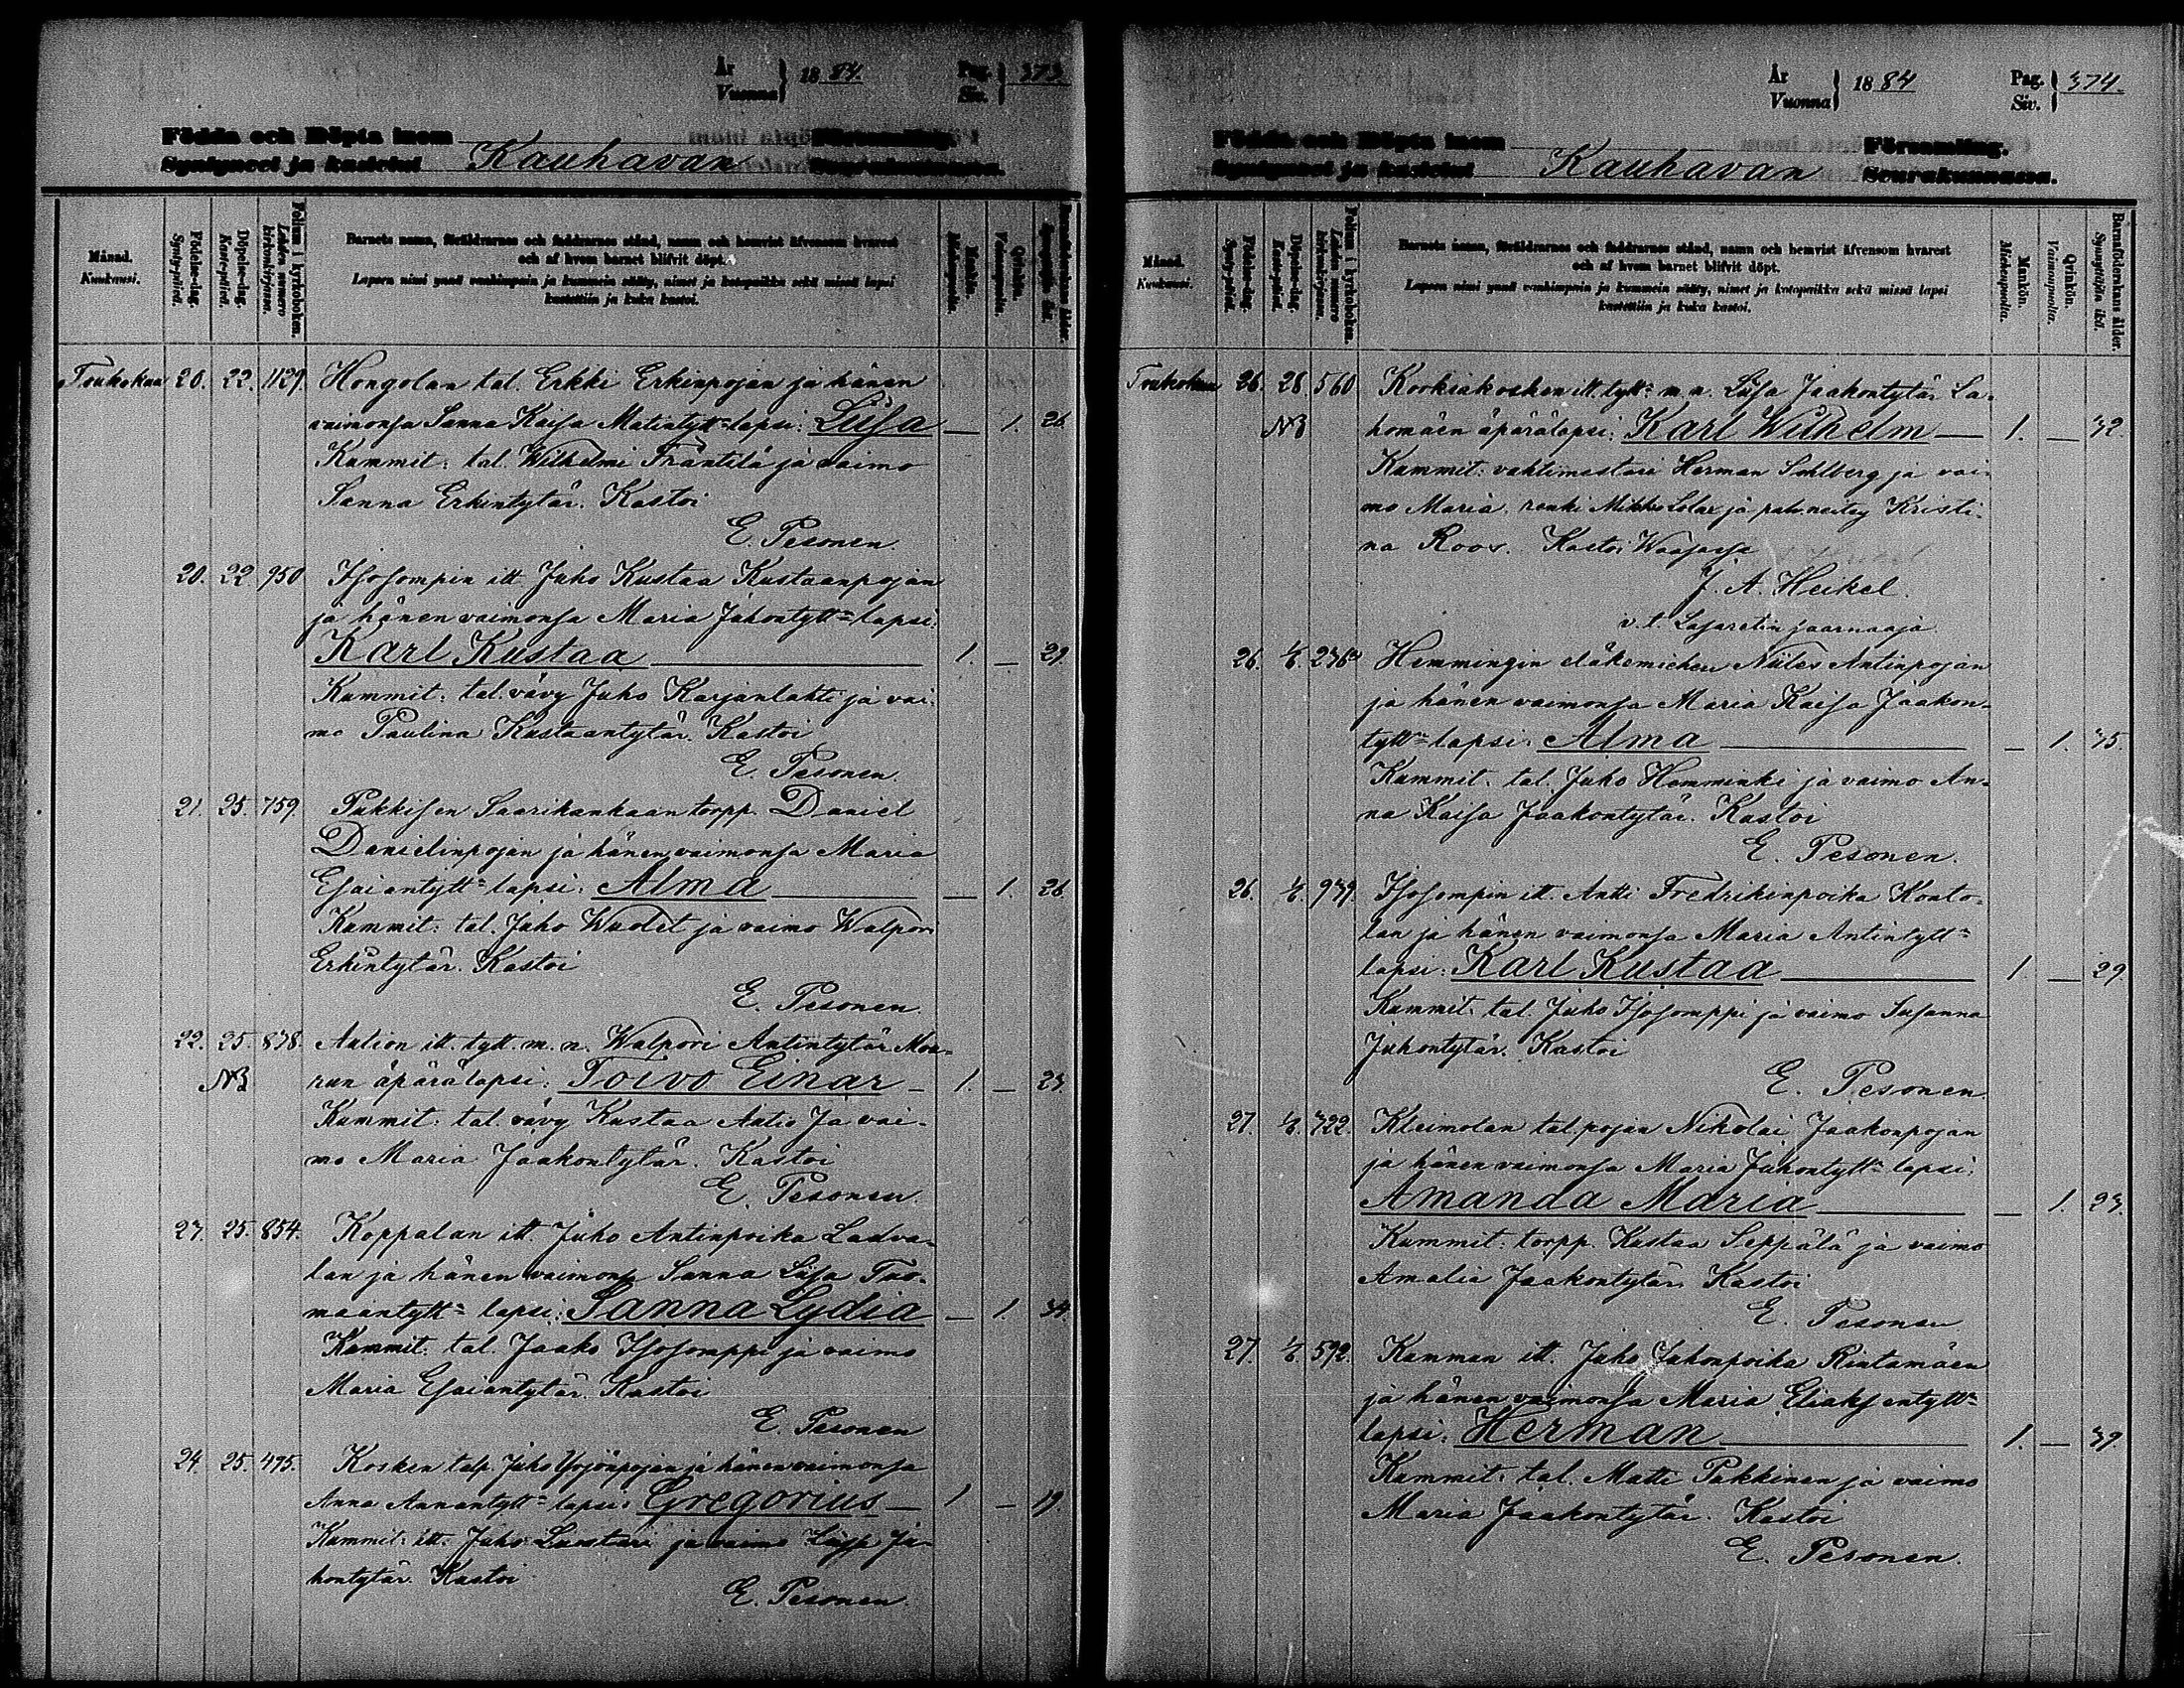 År
Vuonna } 1884. Pag.
Siv. } 373
Födda och Döpta inom Kauhavan Församling.
Syntyneet ja kastetut Seurakunnassa.
Månad.
Kuukausi.
Födelse-dag.
Synty-päivä.
Döpelse-dag.
Kaste-päivä.
Folium i kyrkoboken.
Lehden numero kirkonkirjassa.
Barnets namn, föräldrarnes och faddrarnes stånd, namn och hemvist äfvensom hvarest
och af hvem barnet blifvit döpt.
Lapsen nimi ynnä vanhimpain ja kummein sääty, nimet ja kotopaikka sekä missä lapsi
kastettiin ja kuka kastoi.
Mankön.
Miehenpuolia.
Qvinkön.
Vaimonpuolia.
Barnaföderskans ålder.
Synnyttäjän ikä.
Toukokuu 20. 22. 1129. Hongolan tal. Erkki Erkinpojan ja hänen
vaimonsa Sanna Kaisa Matintytt= lapsi: Liisa — 1. 26.
Kummit: tal. Wilhelmi Fräntilä ja vaimo
Sanna Erkintytär. Kastoi
E. Pesonen.
20. 22 950 Isosompin itt. Juho Kustaa Kustaanpojan
ja hänen vaimonsa Maria Juhontytt= lapsi:
Karl Kustaa 1. — 29.
Kummit: tal. vävy Juho Karjanlahti ja vai-
mo Paulina Kustaantytär. Kastoi
E. Pesonen.
21. 25. 759. Pukkisen Saarikankaan torpp. Daniel
Danielinpojan ja hänen vaimonsa Maria
Esaiantytt= lapsi: Alma — 1. 26.
Kummit: tal. Juho Wuolet ja vaimo Walpori
Erkintytär. Kastoi
E. Pesonen.
22. 25. 838. Antion itt. tytt. m. n. Walpori Antintytär
NB run äpärälapsi: Toivo Einar — 1. — 23.
Kummit: tal. vävy Kustaa Antio ja vai-
mo Maria Jaakontytär. Kastoi
E. Pesonen.
23. 25. 854. Koppalan itt. Juho Antinpoika Ladva-
lan ja hänen vaimonsa Sanna Liisa Tuo-
maantytt= lapsi: Sanna Lydia — 1. 34.
Kummit: tal. Jaako Isosomppi ja vaimo
Maria Esaiantytär. Kastoi
E. Pesonen
24. 25. 495. Kosken talp. Juho Yrjönpojan ja hänen vaimonsa
Anna Annantytt= lapsi: Gregorius — 1 — 19.
Kummit: itt. Juho Luostari ja vaimo Liisa Ju-
hontytär. Kastoi
E. Pesonen.
År
Vuonna } 1884 Pag.
Siv. } 374.
Födda och Döpta inom Kauhavan Församling.
Syntyneet ja kastetut Seurakunnassa.
Månad.
Kuukausi.
Födelse-dag.
Synty-päivä.
Döpelse-dag.
Kaste-päivä.
Folium i kyrkoboken.
Lehden numero kirkonkirjassa.
Barnets namn, föräldrarnes och faddrarnes stånd, namn och hemvist äfvensom hvarest
och af hvem barnet blifvit döpt.
Lapsen nimi ynnä vanhimpain ja kummein sääty, nimet ja kotopaikka sekä missä lapsi
kastettiin ja kuka kastoi.
Mankön.
Miehenpuolia.
Qvinkön.
Vaimonpuolia.
Barnaföderskans ålder.
Synnyttäjän ikä.
Toukokuu 26. 28. 560 Kooksiakosken itt. tytt= m. n. Liisa Jaakontytär La-
NB homäen äpärälapsi: Karl Wilhelm — 1. — 32.
Kummit: vahtimestari Herman Sohlberg ja vai-
mo Maria, renki Mikko ja palv. neitsy Kristi-
na Roos. Kastoi Waasassa
J. A. Heikel.
v. t. Lasaretin saarnaaja
26. 1/6. 236 Hemmingin eläkemiehen Niiles Antinpojan
ja hänen vaimonsa Maria Kaisa Jaakon-
tytt= lapsi: Alma — 1. 35.
Kummit: tal. Juho Hemminki ja vaimo An-
na Kaisa Jaakontytär. Kastoi
E. Pesonen.
26. 1/6. 939. Isosompin itt. Antti Fredrikinpoika Koato-
lan ja hänen vaimonsa Maria Antintytt=
lapsi: Karl Kustaa 1 — 29.
Kummit: tal. Juho Isosomppi ja vaimo Susanna
Juhontytär. Kastoi
E. Pesonen
27. 1/6. 722. Kleimolan tal. pojan Nikolai Jaakonpojan
ja hänen vaimonsa Maria Juhontytt= lapsi:
Amanda Maria — 1. 23.
Kummit: torpp. Kustaa Seppälä ja vaimo
Amalia Jaakontytär. Kastoi
E. Pesonen
27. 1/6. 592. Kamman itt. Juho Juhonpoika Rintamäen
ja hänen vaimonsa Maria Eliaksentytt=
lapsi: Herman 1. — 39
Kummit: tal. Matti Pukkinen ja vaimo
Maria Jaakontytär. Kastoi
E. Pesonen.